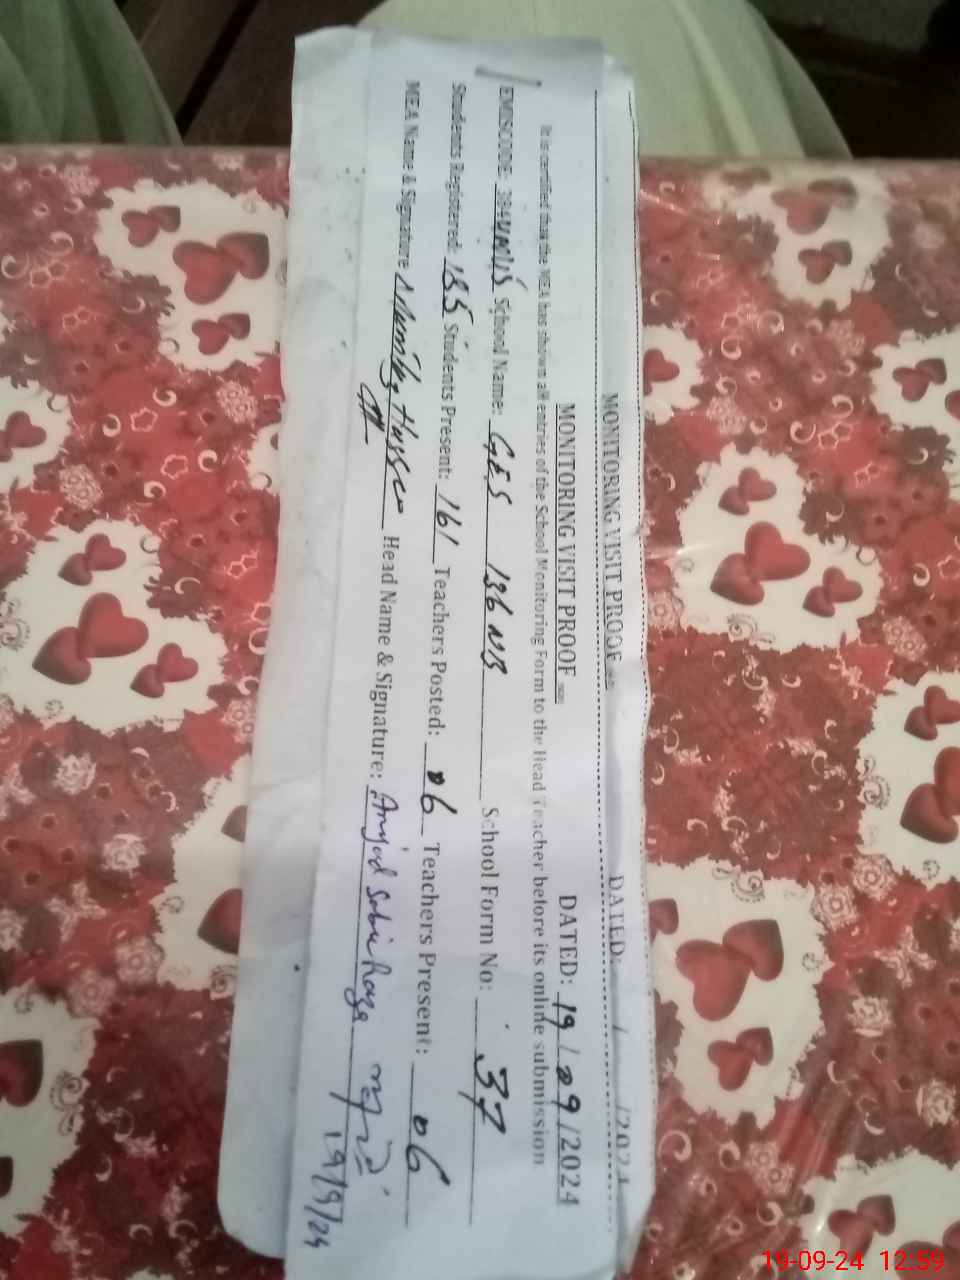 MONITORING VISIT PROOF DATED: / /2024
MONITORING VISIT PROOF DATED: 19/09/2024
It is certified that the MEA has shown all entries of the School Monitoring Form to the Head Teacher before its online submission.
EMISCODE: School Name: GES 136 NB School Form No: 37
Students Registered: Students Present: 161 Teachers Posted: 06 Teachers Present: 06
MEA Name & Signature Head Name & Signature: Amjad
19/9/24
19-09-24 12:59